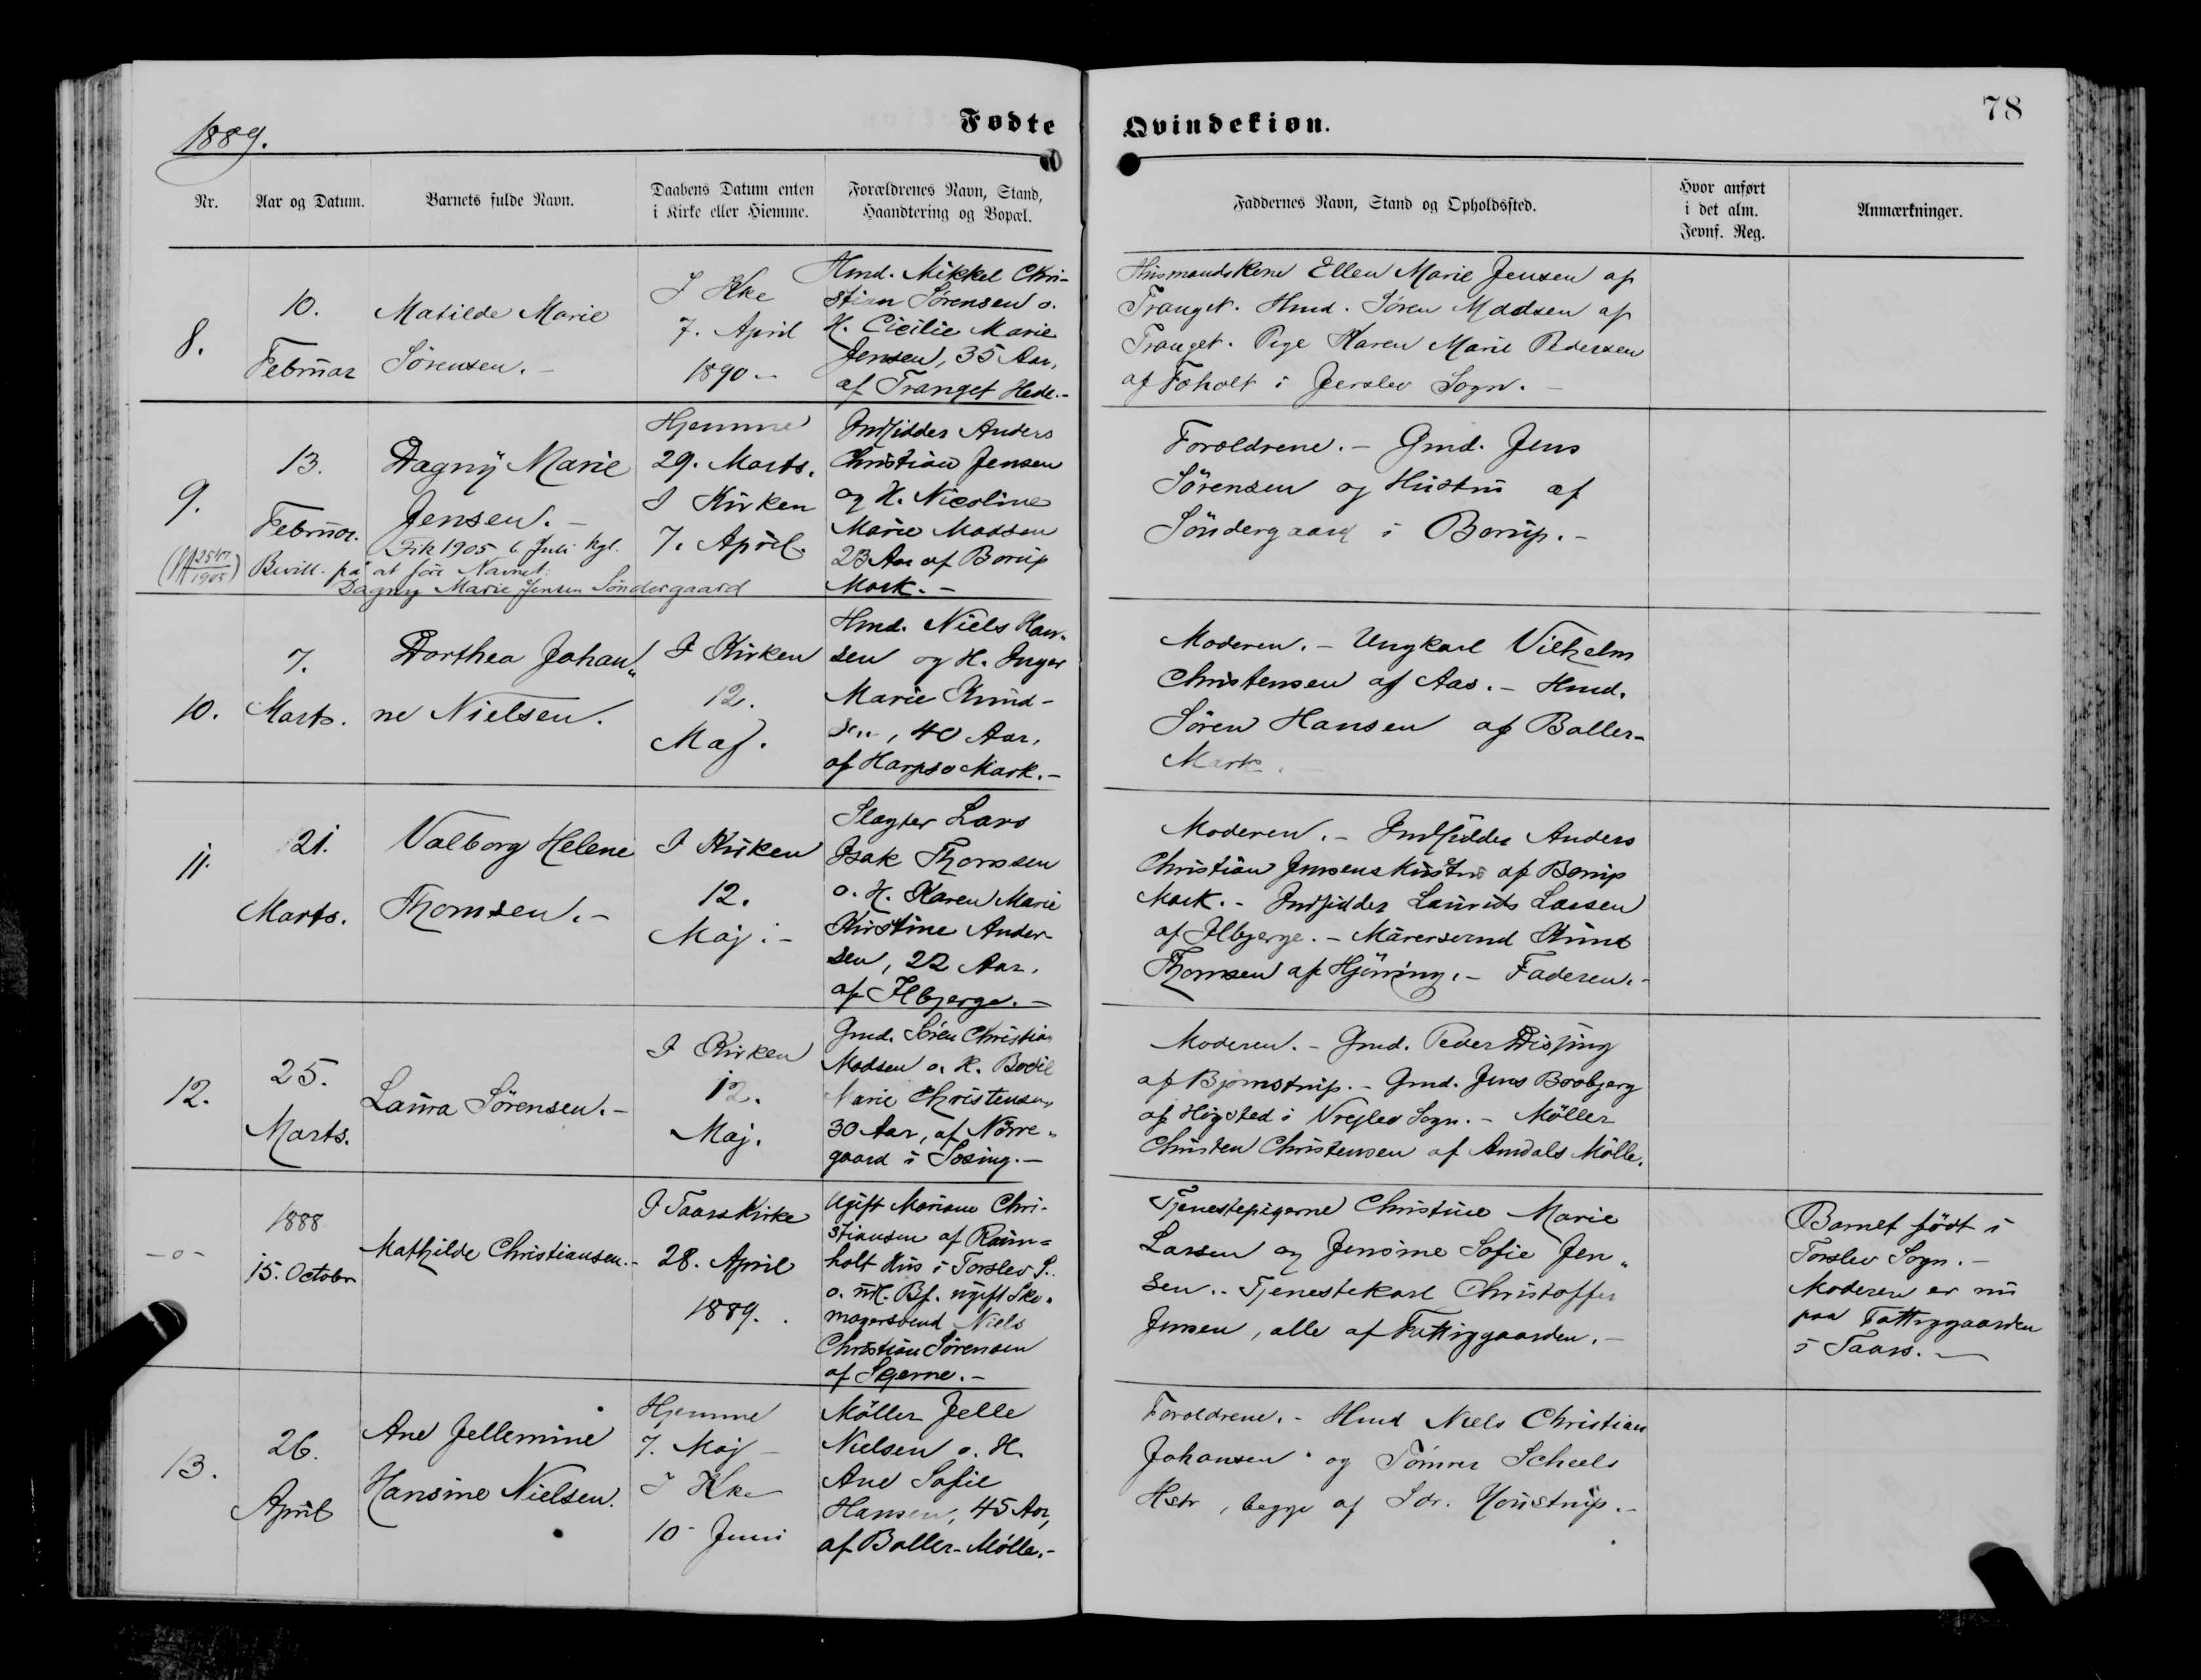 1889.
Fødte
Qvindekiøn.
78
Nr.
Aar og Datum.
Barnets fulde Navn.
Daabens Datum enten
i Kirke eller Hiemme.
Forældrenes Navn, Stand,
Haandtering og Bopæl.
Faddernes Navn, Stand og Opholdssted.
Hvor anført
i det alm.
Jevnf. Reg.
Anmærkninger.
8.
10.
Februar
Matilde Marie
Sørensen. -
I Kke
7. April
1890 -
Hmd. Mikkel Chri-
stian Sørensen o.
H. Cicilie Marie
Jensen, 35 Aar,
af Tranget Hede. -
Husmandskone Ellen Marie Jensen af
Tranget. Hmd. Søren Madsen af
Tranget. Pige Karen Marie Pedersen
af Foholt i Jerslev Sogn. -
9.
13.
Februar.
Dagny Marie
Jensen. -
Fik 1905 6. Juli kgl.
Bevill. på at føre Navnet:
Dagny Marie Jensen Søndergaard
Hjemme
29. Marts.
I Kirken
7. April.
Indsidder Anders
Christian Jensen
og H. Nicoline
Marie Madsen
23 Aar af Borup
Mark. -
Forældrene. - Gmd. Jens
Sørensen og Hustru af
Søndergaard i Borup. -
10.
7.
Marts.
Dorthea Johan„
ne Nielsen.
I Kirken
12.
Maj.
Hmd. Niels Han-
sen og H. Inger
Marie Knud-
sen, 40 Aar,
af Harpsø Mark. -
Moderen. - Ungkarl Vilhelm
Christensen af Aas. - Hmd.
Søren Hansen af Baller-
Mark. -
11.
21.
Marts.
Valborg Helene
Thomsen. -
I Kirken
12.
Maj. -
Slagter Lars
Isak Thomsen
o. H. Karen Marie
Kirstine Ander-
sen, 22 Aar,
af Ilbjerge. -
Moderen. - Indsidder Anders
Christian Jensens Hustru af Borup
Mark. - Indsidder Laurits Larsen
af Ilbjerge. - Murersvend Knud
Thomsen af Hjørring. - Faderen. -
12.
25.
Marts.
Laura Sørensen. -
I Kirken
12.
Maj.
Gmd. Søren Christian
Madsen o. H. Bodil
Marie Christensen
30 Aar, af Nørre„
gaard i Sosing. -
Moderen. - Gmd. Peder
af Bjørnstrup. - Gmd. Jens Bovbjerg
af Høgsted i Vrejlev Sogn. - Møller
Christen Christensen af Amdals Mølle.
-o-
1888
15. Octobr
Mathilde Christiansen. -
I Taars Kirke
28. April
1889.
Ugift Mariane Chri-
stiansen af Raun=
holt Hus i Torslev S.
o. udl. Bf. ugift Sko-
magersvend Niels
Christian Sørensen
af Skjerne. -
Tjenestepigerne Christine Marie
Larsen og Jensine Sofie Jen„
sen. - Tjenestekarl Christoffer
Jensen, alle af Fattiggaarden. -
Barnet født i
Torslev Sogn. -
Moderen er nu
paa Fattiggaarden
i Taars. -
13.
26.
April
Ane Jellemine
Hansine Nielsen.
Hjemme
7. Maj -
I Kke
10 Juni
Møller Jelle
Nielsen o. H.
Ane Sofie
Hansen, 45 Aar,
af Baller-Mølle. -
Forældrene. - Hmd Niels Christian
Johansen og Tømrer Scheels
Hstr, begge af Sdr. Houstrup. -